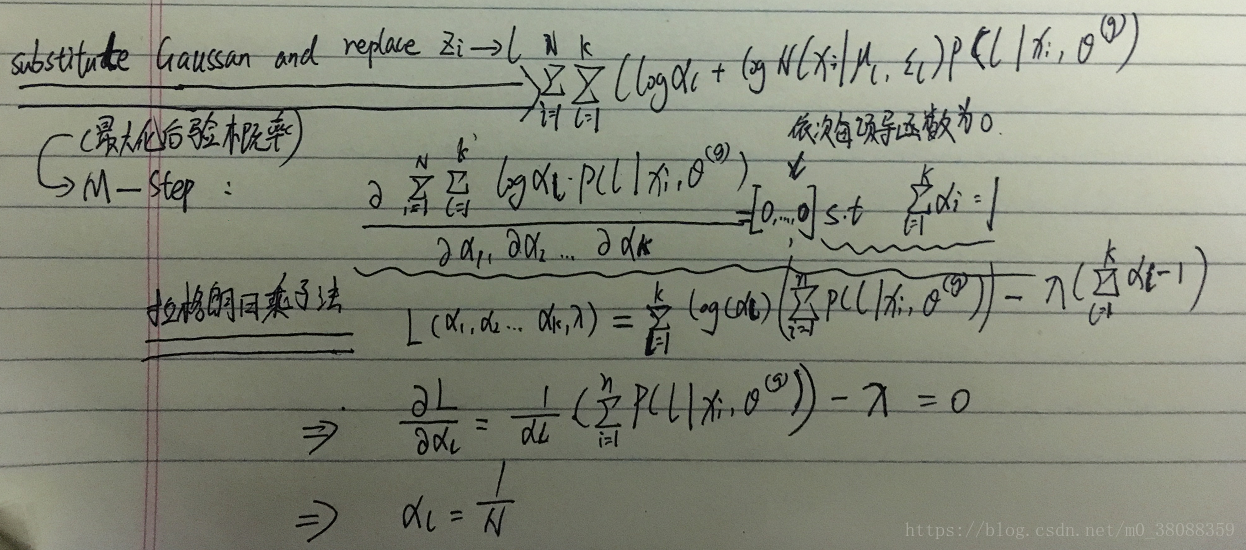 substitute Gaussan and replace Zi → l ⟩ ∑_{i=1}^{N} ∑_{l=1}^{k} (log αl + log N(xi | μl, Σl) P(l | xi, θ^(g))
(最大化后验概率) 依次每项导函数为0.
→ M-Step : ∂ ∑_{i=1}^{N} ∑_{l=1}^{k} log αl · P(l | xi, θ^(g)) / ∂α1, ∂α2 ... ∂αk = [0,...,0] s.t ∑_{l=1}^{k} αi = 1
拉格朗日乘子法 L(α1, α2 ... αk, λ) = ∑_{l=1}^{k} log(αl) (∑_{i=1}^{n} P(l | xi, θ^(g))) - λ(∑_{l=1}^{k} αl - 1)
⇒ ∂L/∂αl = 1/αl (∑_{i=1}^{n} P(l | xi, θ^(g))) - λ = 0
⇒ αl = 1/N
https://blog.csdn.net/m0_38088359